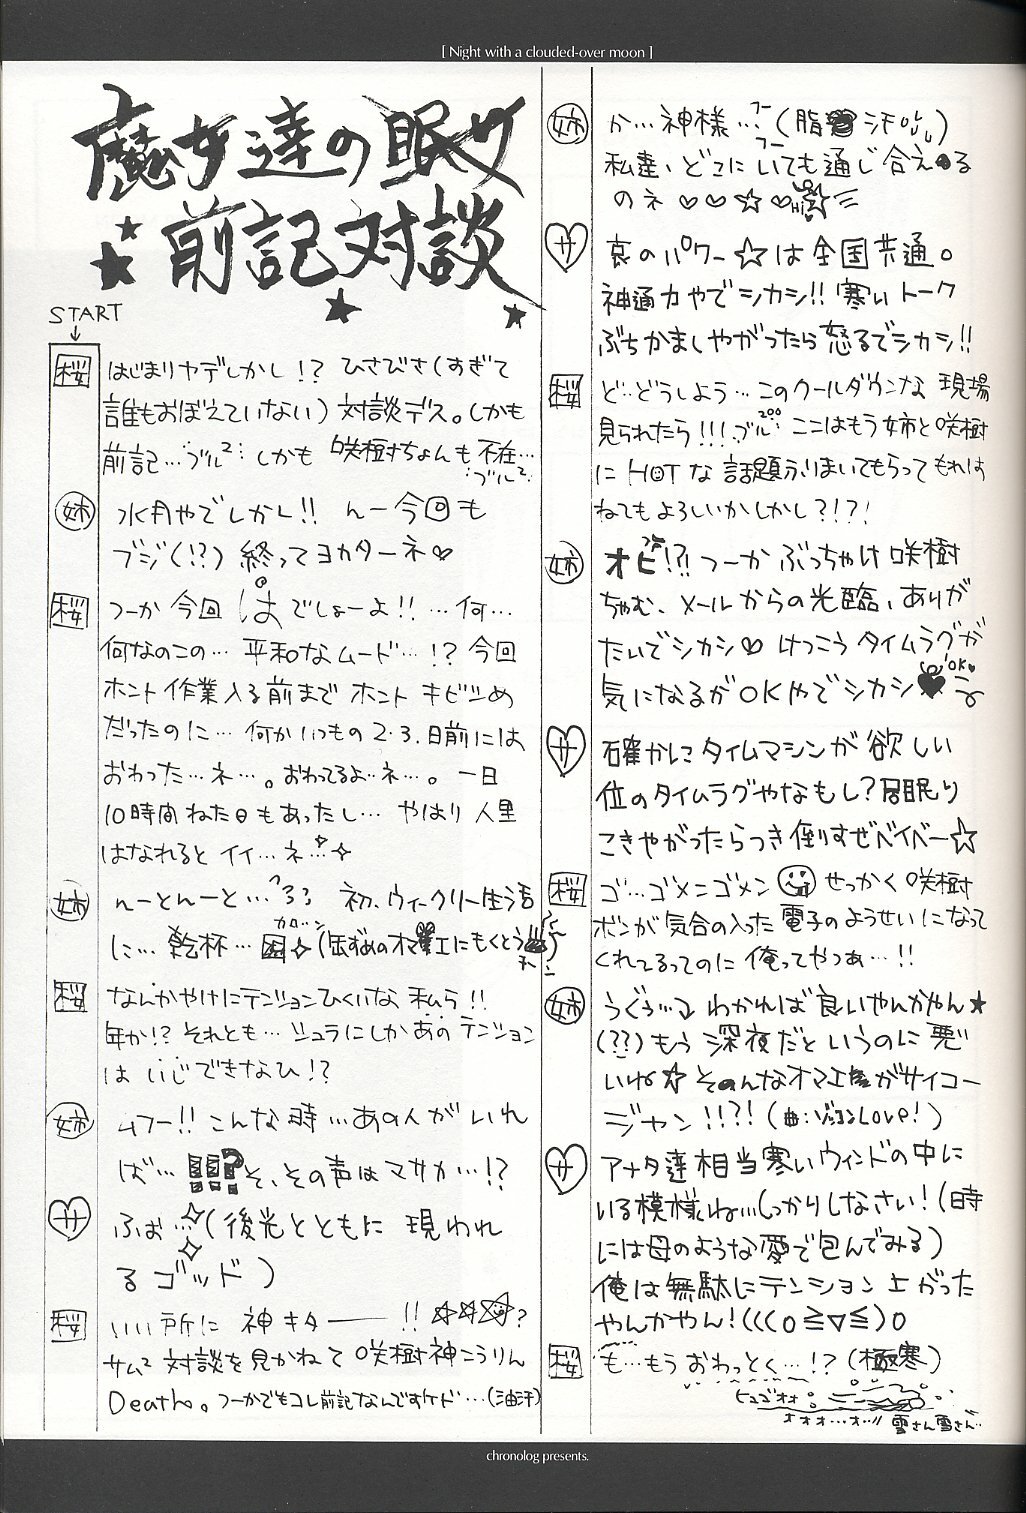 [ Night with a clouded-over moon ]
魔女達の眠り
前記対談
START
桜 はじまりヤデしかし!? ひさびさ(すぎて
誰もおぼえていない) 対談デス。しかも
前記…ブル² しかも 咲樹ちょんも不在…
ブル²
姉 水月やでしかし!! んー今回も
ブジ(!?) 終ってヨカターネ♡
桜 つーか 今回 は でしょーよ!! …何…
何なのこの… 平和なムード…!? 今回
ホント作業入る前まで ホント キビシめ
だったのに… 何かいつもの 2・3.日前には
おわった…ネ…。おわってるよ…ネ…。一日
10時間ねた日もあったし… やはり 人里
はなれると イイ…ネ…
姉 んーとんーと… 初、ウィークリー生活
に… 乾杯…
桜 なんかやけにテンションひくいな 私ら!!
年か!? それとも… シュラにしかあのテンション
は いじできなひ!?
姉 ムフー!! こんな時…あの人がいれ
ば… !!!? そ、その声はマサカ…!?
サ ふぉ…(後光とともに 現われ
るゴッド)
桜 いい所に 神キター――!! ☆☆☆?
サム² 対談を見かねて 咲樹神こうりん
Death。つーかでもコレ前記なんですケド…(油汗)
姉 か…神様…フー(脂 汗)
フー
私達、どこにいても通じ合える
のネ ♡♡☆♡
Hi
サ 哀のパワー☆は全国共通。
神通力やでシカシ!! 寒いトーク
ぶちかましやがったら怒るでシカシ!!
桜 ど…どうしよう…このクールダウンな 現場
見られたら!!! ブル… ここはもう姉と咲樹
に HOT な 話題ふりまいてもらってもれは
ねてもよろしいかしかし?!?!
姉 オビ!?! つーか ぶっちゃけ 咲樹
ちゃむ、メールからの光臨、ありが
たいでシカシ♡ けっこうタイムラグが
気になるがOKやでシカシ♥
OK♥
サ 確かにタイムマシンが欲しい
位のタイムラグやなもし?居眠り
こきやがったらつき倒すぜベイベー☆
桜 ゴ…ゴメンゴメン せっかく咲樹
ボンが気合の入った電子のようせいになって
くれてるってのに 俺ってやつぁ…!!
姉 うぐぅ… わかれば良いやんかやん★
(??)もう 深夜だというのに悪
いね☆ そんなオマエがサイコー
ジャン!!?! (曲:ゾッコンLove!)
サ アナタ達相当寒いウィンドの中に
いる模様ね…しっかりしなさい!(時
には母のような愛で包んでみる)
俺は無駄にテンション上がった
やんかやん!(((o≧▽≦)o
桜 も…もう おわっとく…!?(極寒)
ヒュゴオオ
オオオ…オ…!! 雪さん雪さん…
chronolog presents.